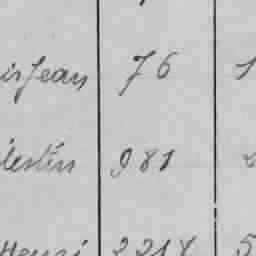 is Jean 76 1
lestin 981 2
Henri 2218 5